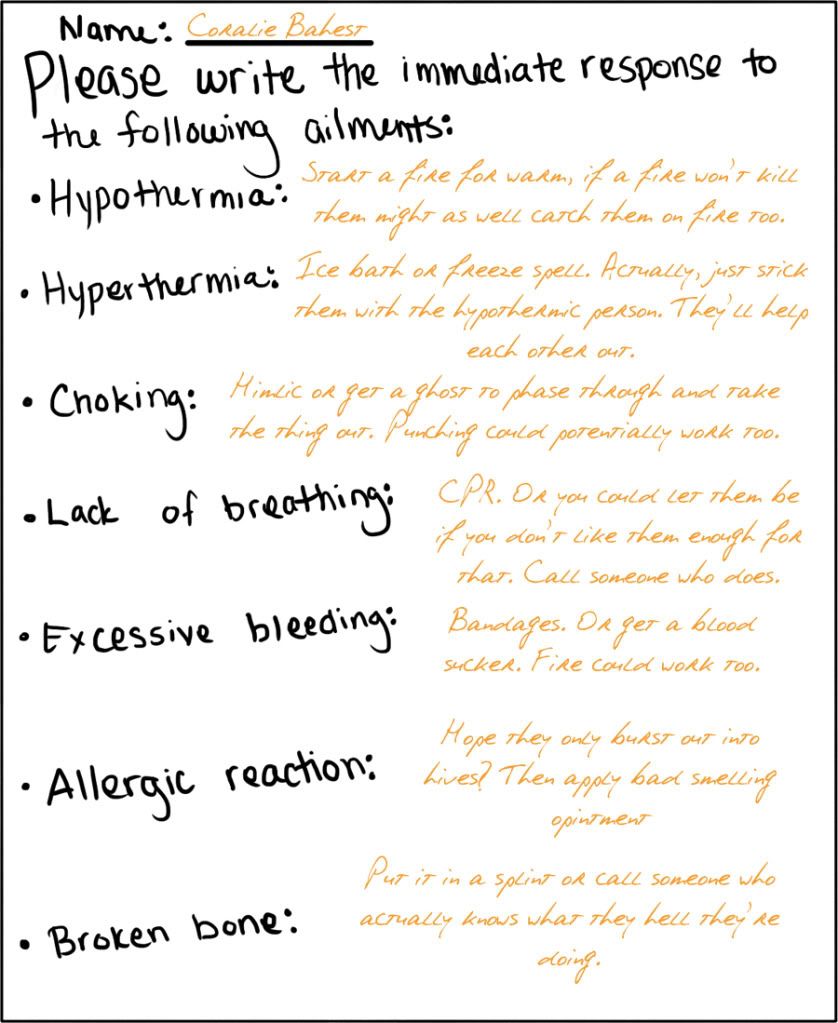 Name: Coralie Bahest
Please write the immediate response to
the following ailments:
• Hypothermia: Start a fire for warm, if a fire won't kill
them might as well catch them on fire too.
• Hyperthermia: Ice bath or freeze spell. Actually, just stick
them with the hypothermic person. They'll help
each other out.
• Choking: Himlic or get a ghost to phase through and take
the thing out. Punching could potentially work too.
• Lack of breathing: CPR. Or you could let them be
if you don't like them enough for
that. Call someone who does.
• Excessive bleeding: Bandages. Or get a blood
sucker. Fire could work too.
• Allergic reaction: Hope they only burst out into
hives? Then apply bad smelling
opintment
• Broken bone: Put it in a splint or call someone who
actually knows what they hell they're
doing.